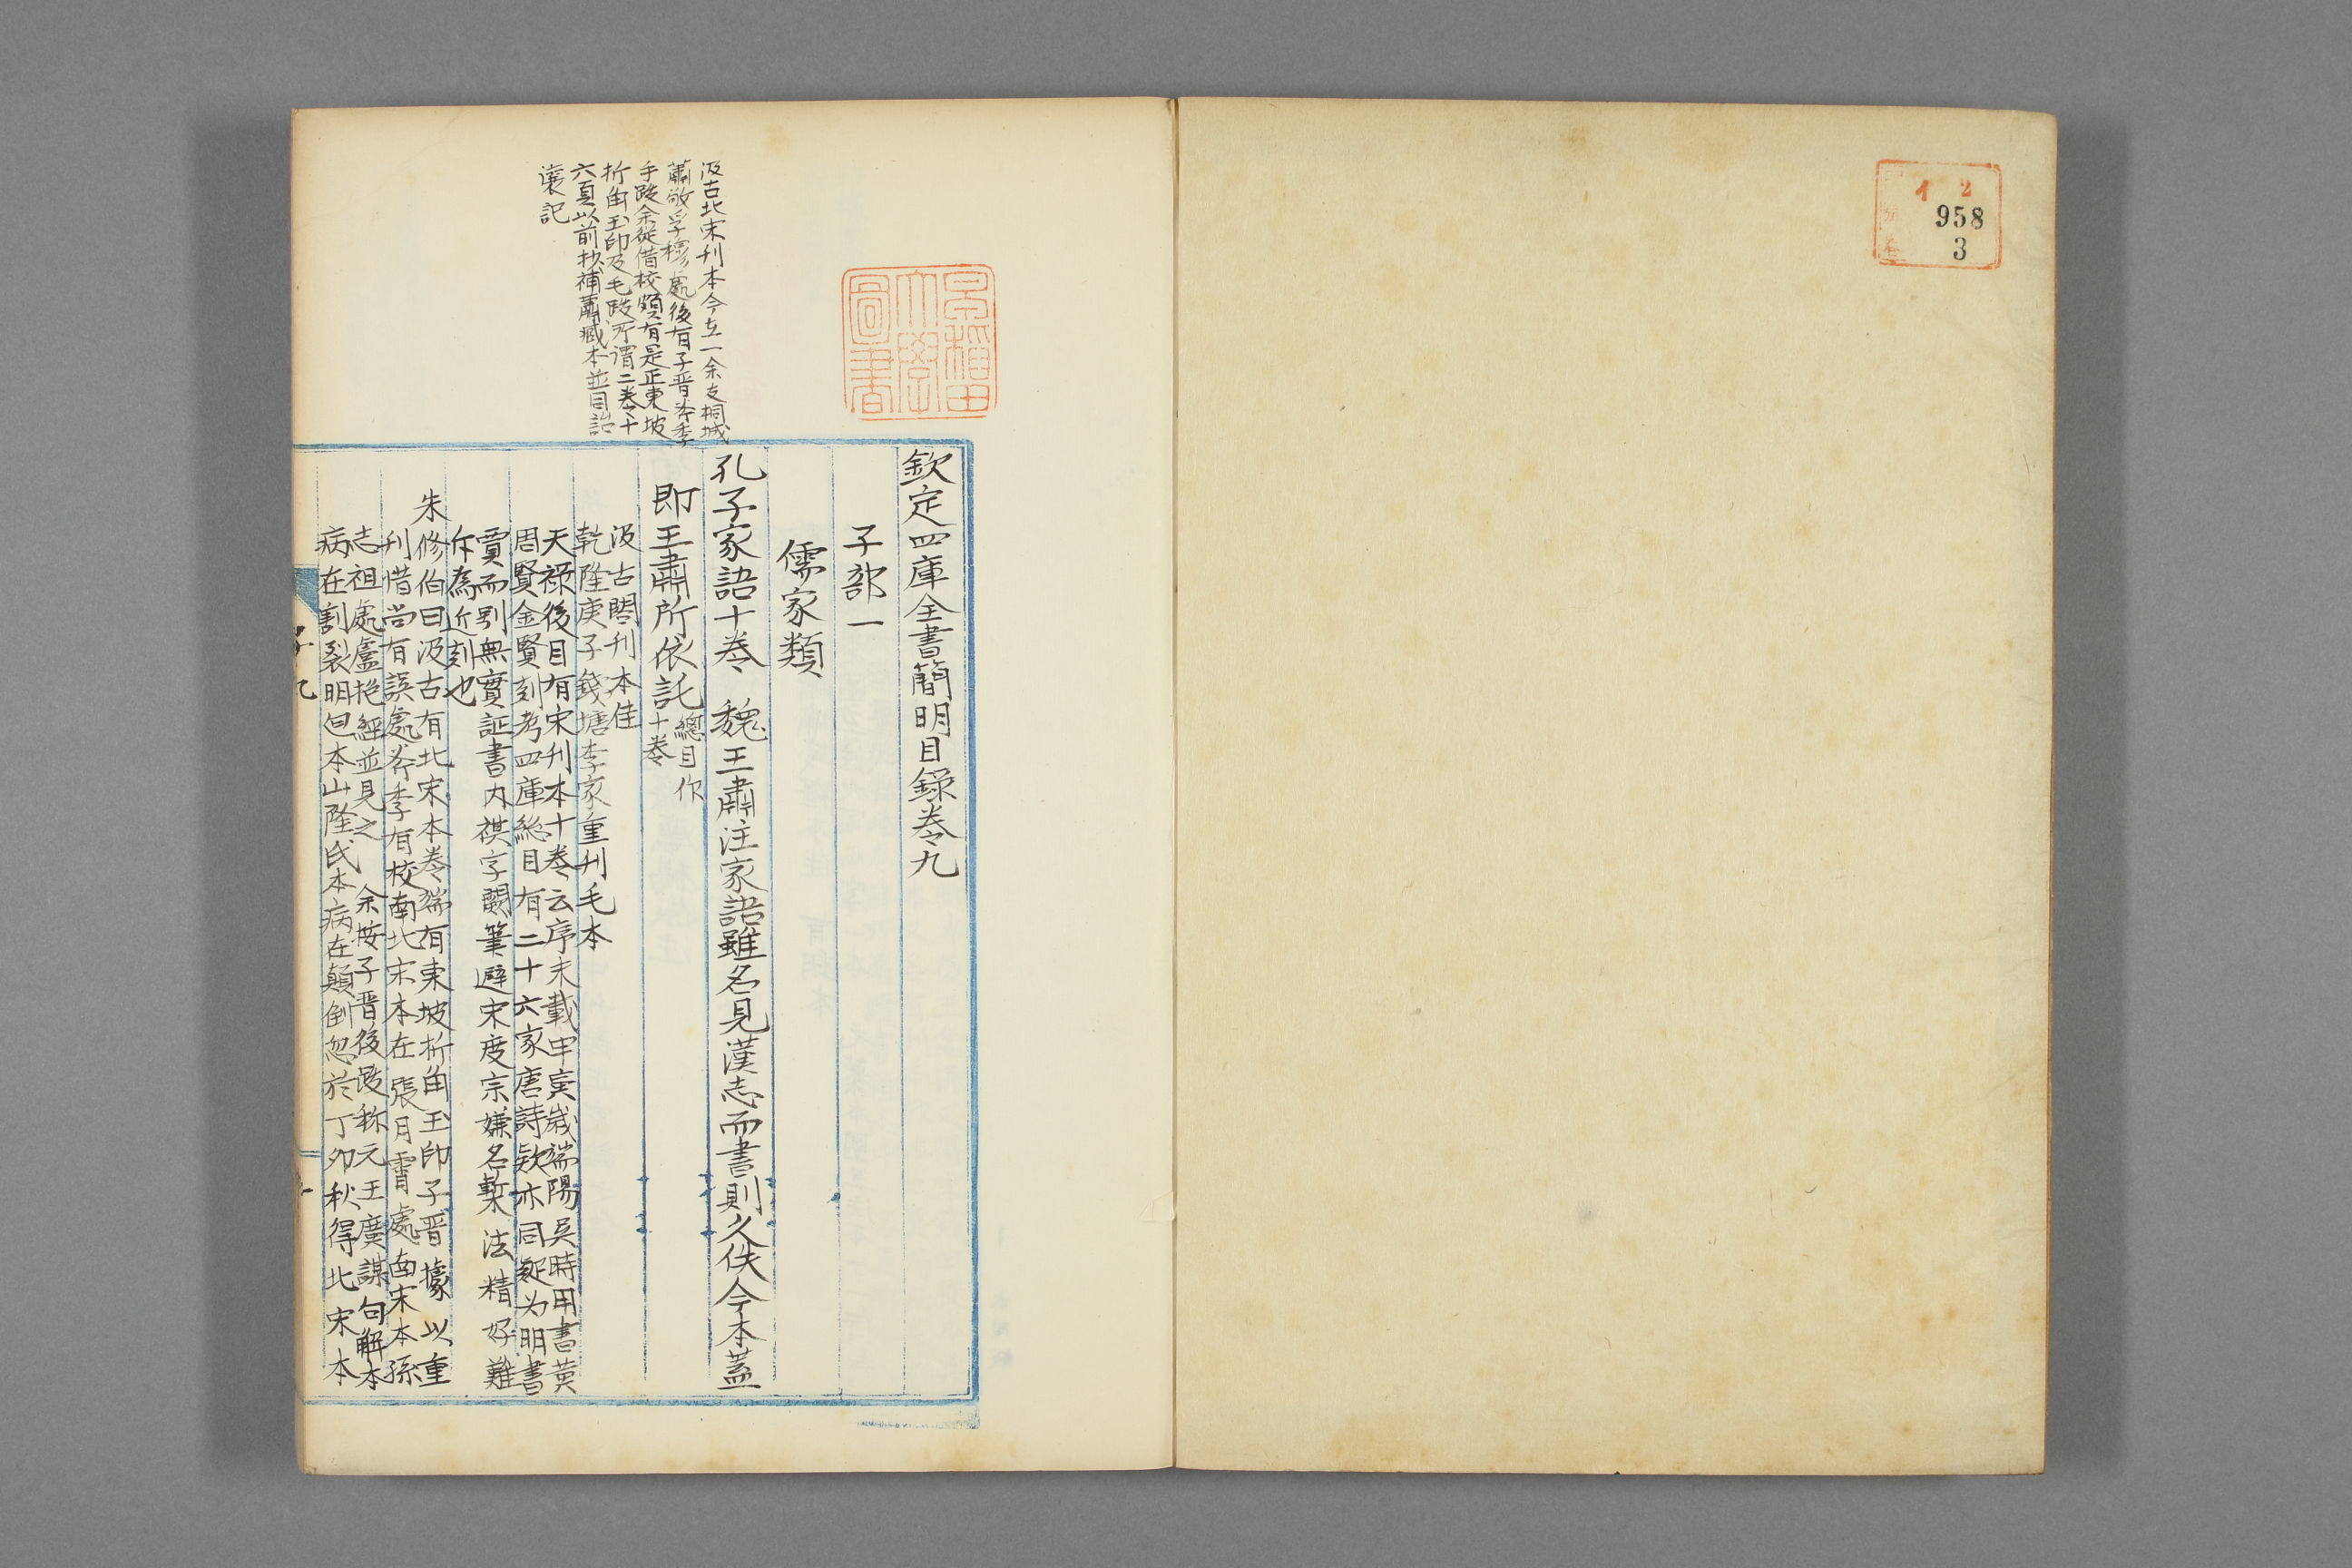 イ 2
958
3
早稲田
大學
圖書
汲古北宋刊本今在一余友桐城
蕭敬孚穆處後有子晉斧季
手跋余從借校頗有是正東坡
折角玉印及毛跋所謂二卷十
六頁以前抄補蕭臧本並同詒
讓記
欽定四庫全書簡明目錄卷九
子部一
儒家類
孔子家語十卷 魏王肅注家語雖名見漢志而書則久佚今本蓋
即王肅所依託總目作十卷
汲古閣刊本佳
乾隆庚子錢塘李家重刊毛本
天祿後目有宋刊本十卷云序末載甲寅歲端陽吳時用書黃
周賢金賢刻考四庫總目有二十六家唐詩欵亦同疑为明書
賈而别無實証書内祺字闕筆避宋度宗嫌名槧法精好難
斥為近刻也
朱修伯曰汲古有北宋本卷端有東坡折角玉印子晋據以重
刊惜尚有誤處斧季有校南北宋本在張月霄處南宋本孫
志祖處盧抱經並見之 余按子晋後跋称元王廣謀句解本
病在割裂明包本山陸氏本病在顛倒忽於丁夘秋得北宋本
子九